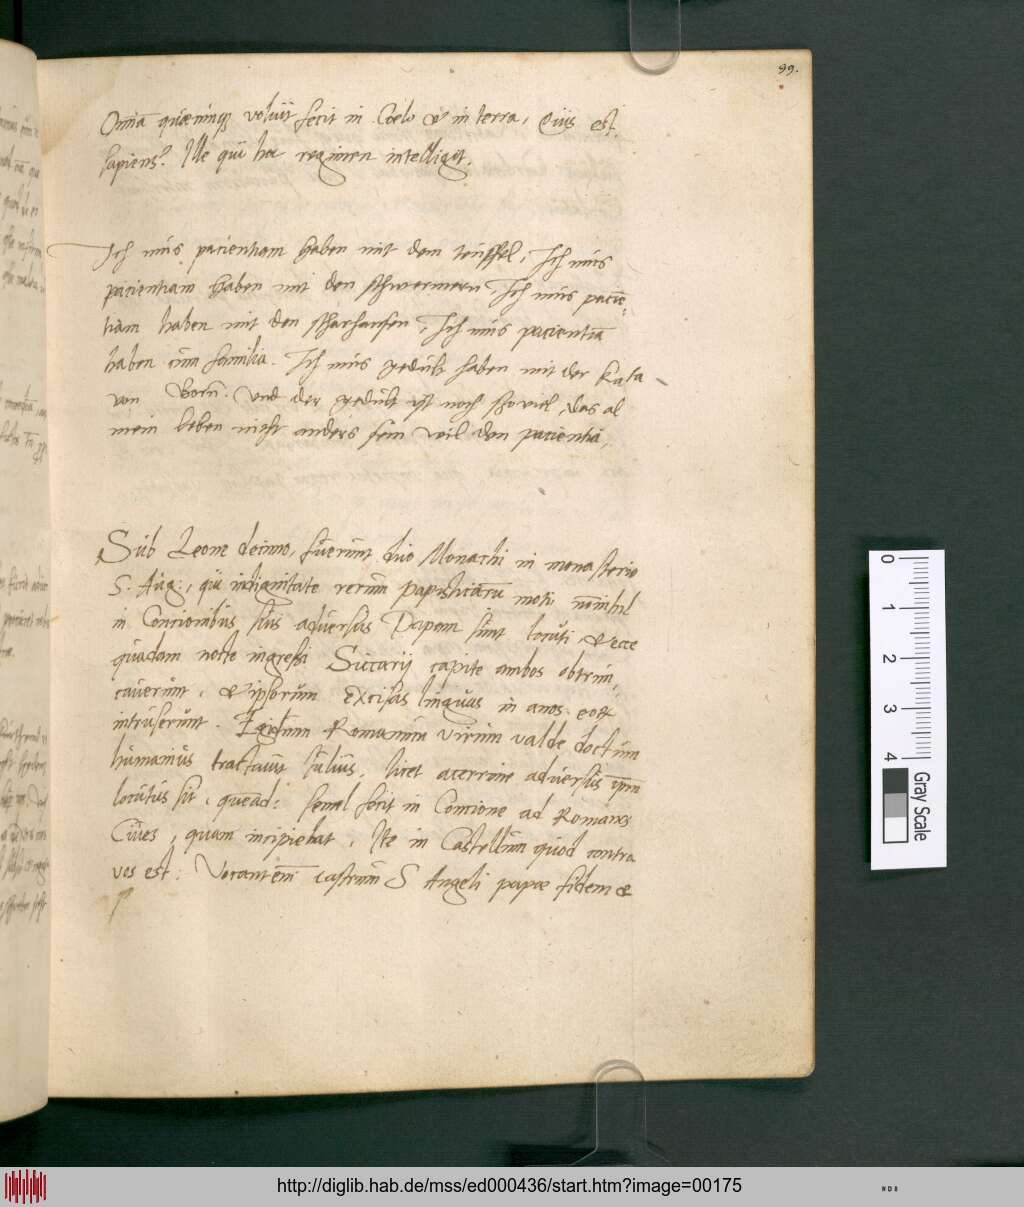 99.
Omīa quæcunq₃ voluit fecit in Coelo & in terra, Quis est
sapiens? Ille qui hec regimen intelligit.
Ich mus pacientiam haben mit dem teuffel, Ich mus
pacientiam haben mit den schwermern, Ich mus pacien-
tiam haben mit den scharhansen, Ich mus pacientiā
haben cum familia. Ich mus gedult haben mit der Kata
von Born. Und der gedult ist noch sho viel, das al
mein leben nicht anders sein wil den pacientia,
Sub Leone decimo, fuerunt duo Monachi in monasterio
S. Aug:, qui indignitate rerum papisticaru moti nonnihil
in Concionibus suis adversus Papam sunt locuti, & ecce
quadam nocte ingressi Siccarij capite ambos obtrun-
caverunt, & ipsorum excisas linguas in anos
intruserunt. Egidium Romanum virum valde doctum
humanius tractavit Iulius, licet acerrime adversus ipm
locutus sit, quead: semel fecit in Concione ad Romanos
Cives, quam incipiebat, Ite in Castellum quod contra
vos est: Vocant eni castrum S Angeli papæ fidem &
0 1 2 3 4
Gray Scale
http://diglib.hab.de/mss/ed000436/start.htm?image=00175